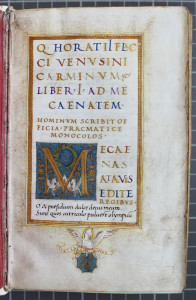 Q·HORATII·FLAC
CI VENUSINI
CARMINVM
LIBER·I·AD·ME
CAENATEM·
HOMINVM SCRIBIT OF
FICIA·PRAGMATICE
MONOCOLOS·
MECAE
NAS
ATAVIS
EDITE
REGIBVS·
O & præsidium dulce decus meum
Sunt quos curriculo puluerē olympicū